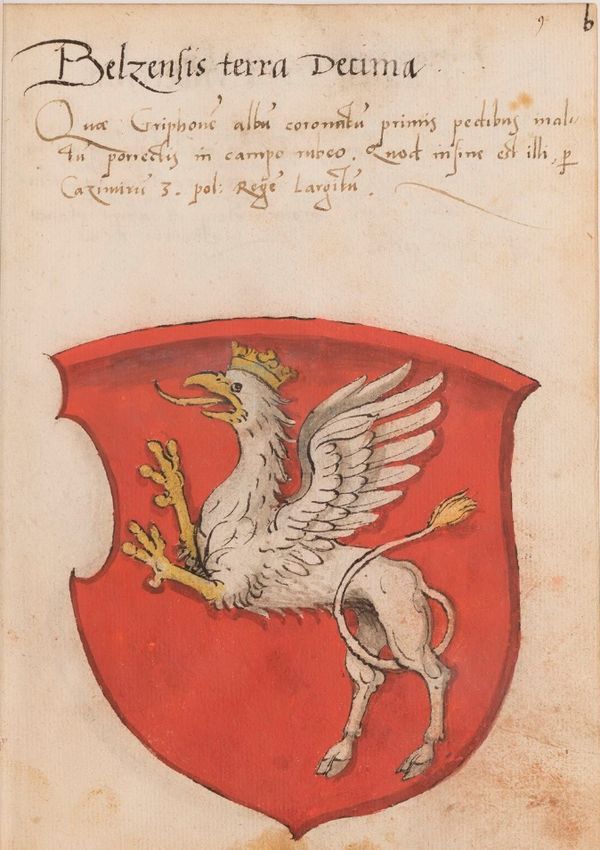 9 b
Belzensis terra Decima
Quæ Griphonē albū coronatū primis pedibus mul-
tū porrectis in campo rubeo. Quod insine est illi, p
Cazimirū 3. pol: Regē Largitū.